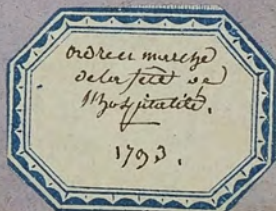 ordre et marche
de la fete de
l'hospitalité.
1793.